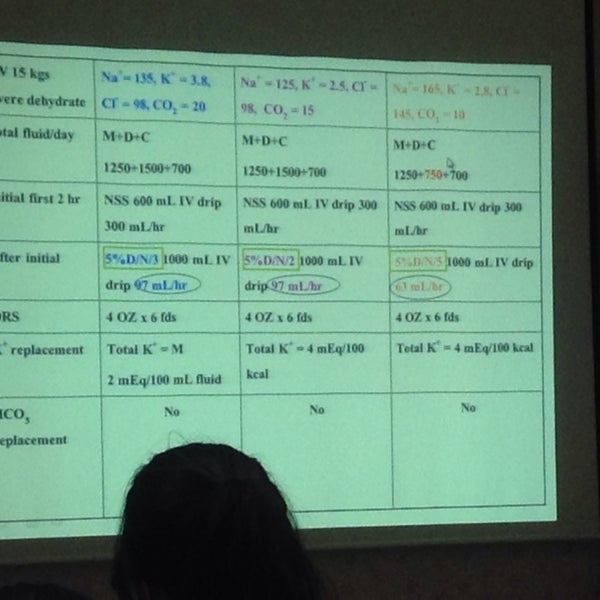 V 15 kgs
vere dehydrate
Na⁺= 135, K⁺ = 3.8,
Cl⁻ = 98, CO₂ = 20
Na⁺ = 125, K⁺ = 2.5, Cl⁻ =
98, CO₂ = 15
Na⁺ = 165, K⁺ = 2.8, Cl⁻ =
145, CO₂ = 10
otal fluid/day
M+D+C
1250+1500+700
M+D+C
1250+1500+700
M+D+C
1250+750+700
itial first 2 hr
NSS 600 mL IV drip
300 mL/hr
NSS 600 mL IV drip 300
mL/hr
NSS 600 mL IV drip 300
mL/hr
fter initial
5%D/N/3 1000 mL IV
drip 97 mL/hr
5%D/N/2 1000 mL IV
drip 97 mL/hr
5%D/N/5 1000 mL IV drip
63 mL/hr
ORS
4 OZ x 6 fds
4 OZ x 6 fds
4 OZ x 6 fds
⁺ replacement
Total K⁺ = M
2 mEq/100 mL fluid
Total K⁺ = 4 mEq/100
kcal
Total K⁺ = 4 mEq/100 kcal
HCO₃
eplacement
No
No
No